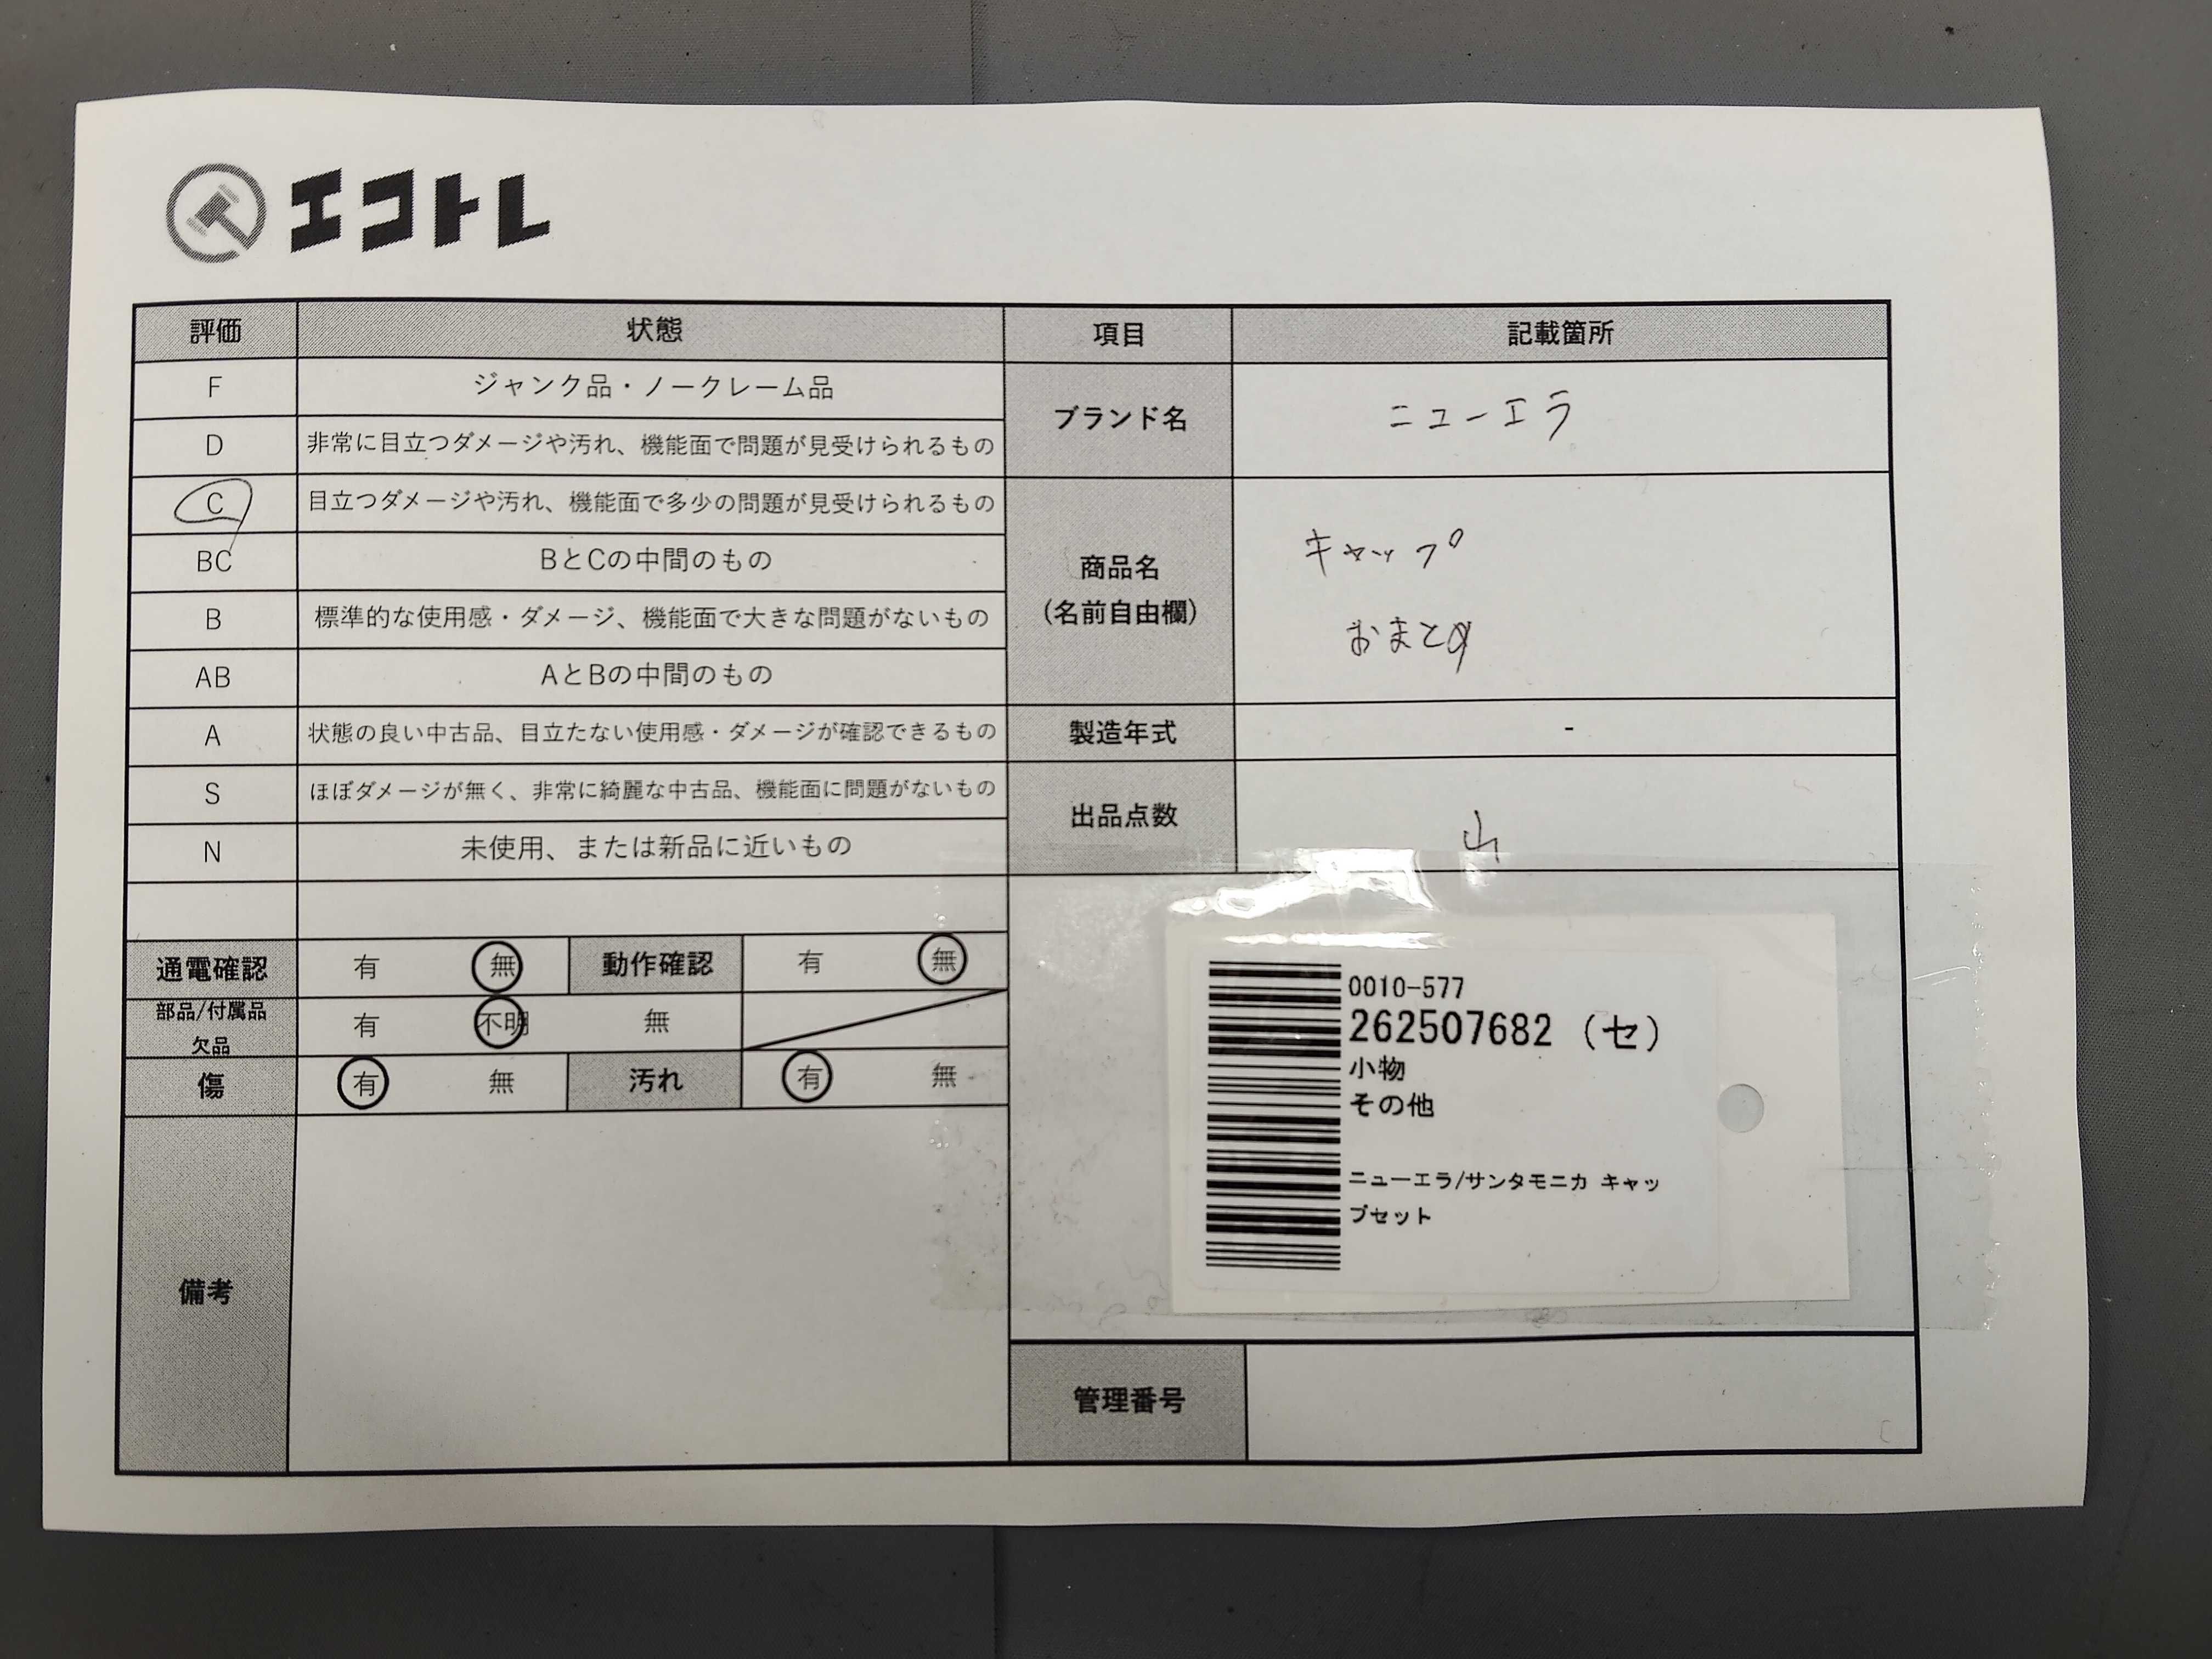 エコトレ
評価 状態 項目 記載箇所
F ジャンク品・ノークレーム品
D 非常に目立つダメージや汚れ、機能面で問題が見受けられるもの
C 目立つダメージや汚れ、機能面で多少の問題が見受けられるもの
BC BとCの中間のもの
B 標準的な使用感・ダメージ、機能面で大きな問題がないもの
AB AとBの中間のもの
A 状態の良い中古品、目立たない使用感・ダメージが確認できるもの
S ほぼダメージが無く、非常に綺麗な中古品、機能面に問題がないもの
N 未使用、または新品に近いもの
通電確認 有 無 動作確認 有 無
部品/付属品
欠品
有 不明 無
傷 有 無 汚れ 有 無
備考
ブランド名 ニューエラ
商品名
(名前自由欄)
キャップ
おまとめ
製造年式 -
出品点数 山
0010-577
262507682 (セ)
小物
その他
ニューエラ/サンタモニカ キャッ
プセット
管理番号